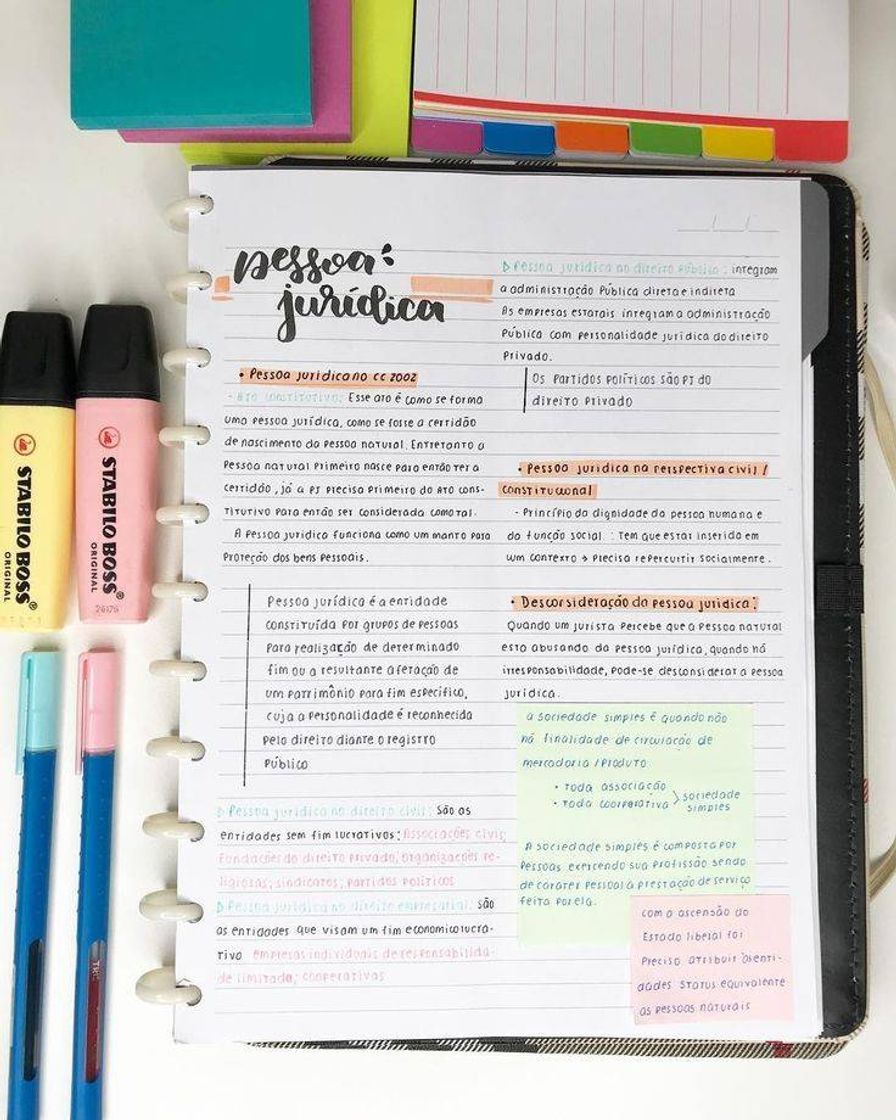 pessoa
jurídica
• Pessoa jurídica no CC 2002
- Ato constitutivo: Esse ato é como se forma
uma pessoa jurídica, como se fosse a certidão
de nascimento da pessoa natural. Entretanto a
Pessoa natural primeiro nasce para então ter a
certidão, já a PJ precisa primeiro do ato cons-
titutivo para então ser considerada como tal.
A pessoa jurídica funciona como um manto para
Proteção dos bens pessoais.
Pessoa jurídica é a entidade
constituída por grupos de pessoas
para realização de determinado
fim ou a resultante afetação de
um patrimônio para fim específico,
cuja a personalidade é reconhecida
pelo direito diante o registro
Público
Pessoa jurídica no direito civil: são as
entidades sem fim lucrativos: Associações civis;
Fundações do direito privado; organizações re-
ligiosas; sindicatos; partidos políticos
Pessoa jurídica no direito empresarial: são
as entidades que visam um fim economico lucra-
tivo empresas individuais de responsabilida-
de limitada; cooperativas
Pessoa jurídica no direito Público: integram
a administração Pública direta e indireta
As empresas estatais integram a administração
Pública com personalidade jurídica do direito
Privado.
Os Partidos Políticos são PJ do
direito Privado
• Pessoa jurídica na perspectiva civil /
constitucional
- Princípio da dignidade da pessoa humana e
da função social: Tem que estar inserida em
um contexto → Precisa repercutir socialmente.
• Desconsideração da pessoa jurídica:
Quando um jurista percebe que a pessoa natural
esta abusando da pessoa jurídica, quando há
irresponsabilidade, pode-se desconsiderar a pessoa
jurídica.
A sociedade simples é quando não
há finalidade de circulação de
mercadoria / produto
• toda associação
• toda cooperativa > sociedade
simples
A sociedade simples é composta por
Pessoas exercendo sua profissão sendo
de carater pessoal a prestação de serviço
feita por ela.
com a ascensão do
Estado liberal foi
Preciso atribuir às enti-
dades status equivalente
as pessoas naturais
STABILO BOSS®
ORIGINAL
STABILO BOSS®
ORIGINAL
TRI